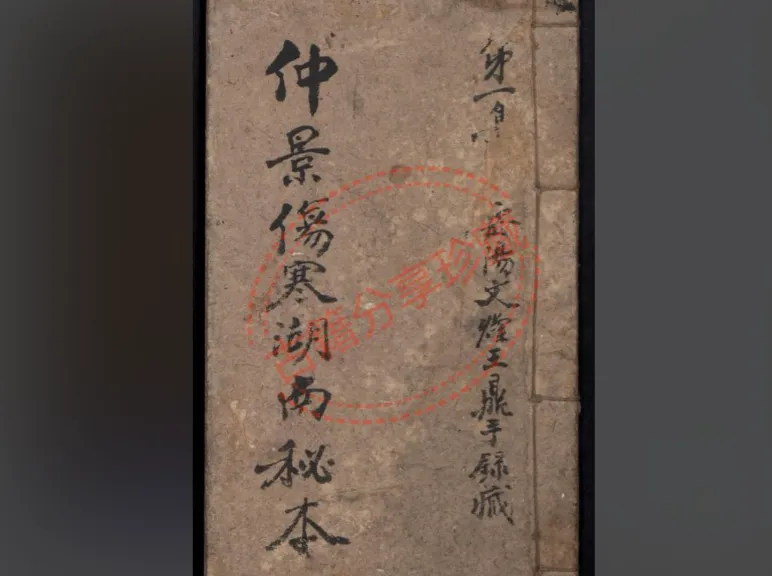 第一
陽文 王鼎手録藏
仲景傷寒湖西秘本
古籍分享珍藏